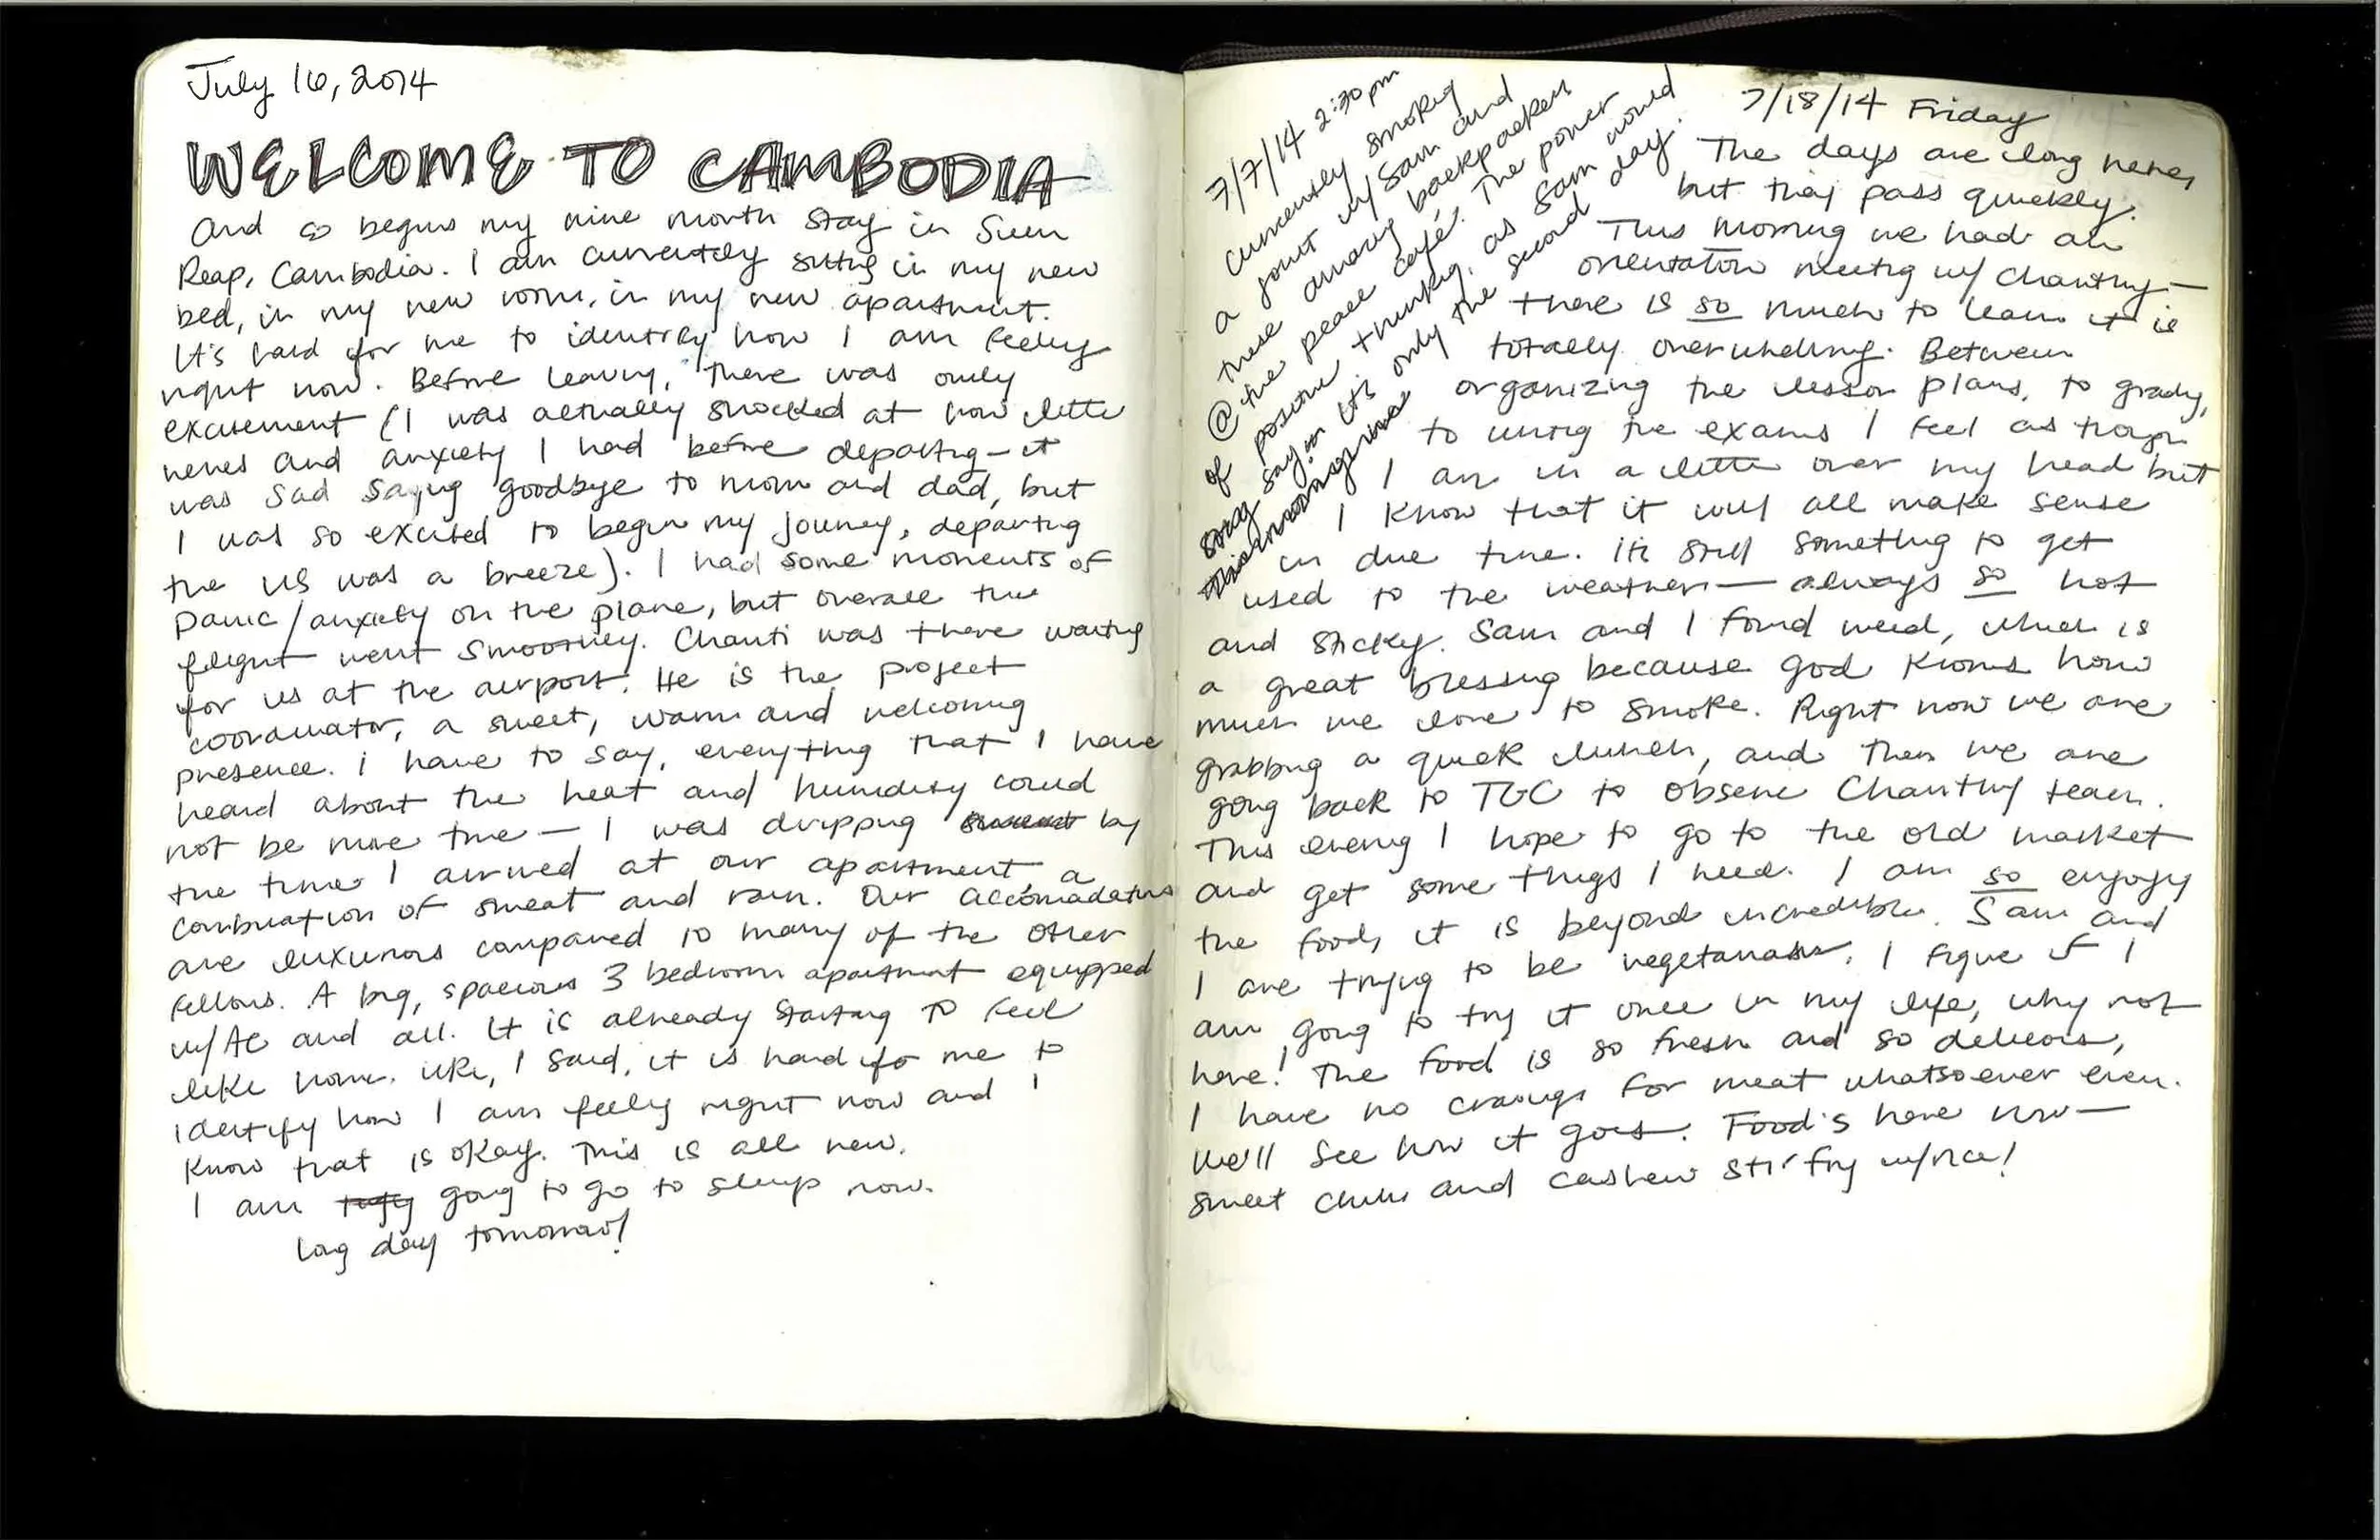 July 16, 2014
WELCOME TO CAMBODIA
And so begins my nine month stay in Siem
Reap, Cambodia. I am currently sitting in my new
bed, in my new room, in my new apartment.
It's hard for me to identify how I am feeling
right now. Before leaving, there was only
excitement (I was actually shocked at how little
nerves and anxiety I had before departing - it
was sad saying goodbye to mom and dad, but
I was so excited to begin my journey, departing
the US was a breeze). I had some moments of
panic/anxiety on the plane, but overall the
flight went smoothly. Chanti was there waiting
for us at the airport. He is the project
coordinator, a sweet, warm and welcoming
presence. I have to say, everything that I have
heard about the heat and humidity could
not be more true — I was dripping by
the time I arrived at our apartment, a
combination of sweat and rain. Our accomadations
are luxurious compared to many of the other
fellows. A big, spacious 3 bedroom apartment equipped
w/AC and all. It is already starting to feel
like home. Like, I said, it is hard for me to
identify how I am feeling right now and I
know that is okay. This is all new.
I am going to go to sleep now.
Long day tomorrow!
7/7/14 2:30 pm
currently smoking
a joint w/ Sam and
these amazing backpackers
@ the peace café. The power
of positive thinking, as Sam would
say. It's only the second day.
7/18/14 Friday
The days are long here,
but they pass quickly.
This morning we had an
orientation meeting w/ Chanthy —
there is so much to learn it is
totally overwhelming. Between
organizing the lesson plans, to grading,
to writing the exams I feel as though
I am in a little over my head but
I know that it will all make sense
in due time. It's still something to get
used to the weather — always so hot
and sticky. Sam and I found weed, which is
a great blessing because god knows how
much we love to smoke. Right now we are
grabbing a quick lunch, and then we are
going back to TGC to observe Chanthy teach.
This evening I hope to go to the old market
and get some things I need. I am so enjoying
the food, it is beyond incredible. Sam and
I are trying to be vegetarians. I figure if I
am going to try it once in my life, why not
here! The food is so fresh and so delicious,
I have no cravings for meat whatsoever even.
We'll see how it goes. Food's here now —
sweet chili and cashew stir fry w/rice!